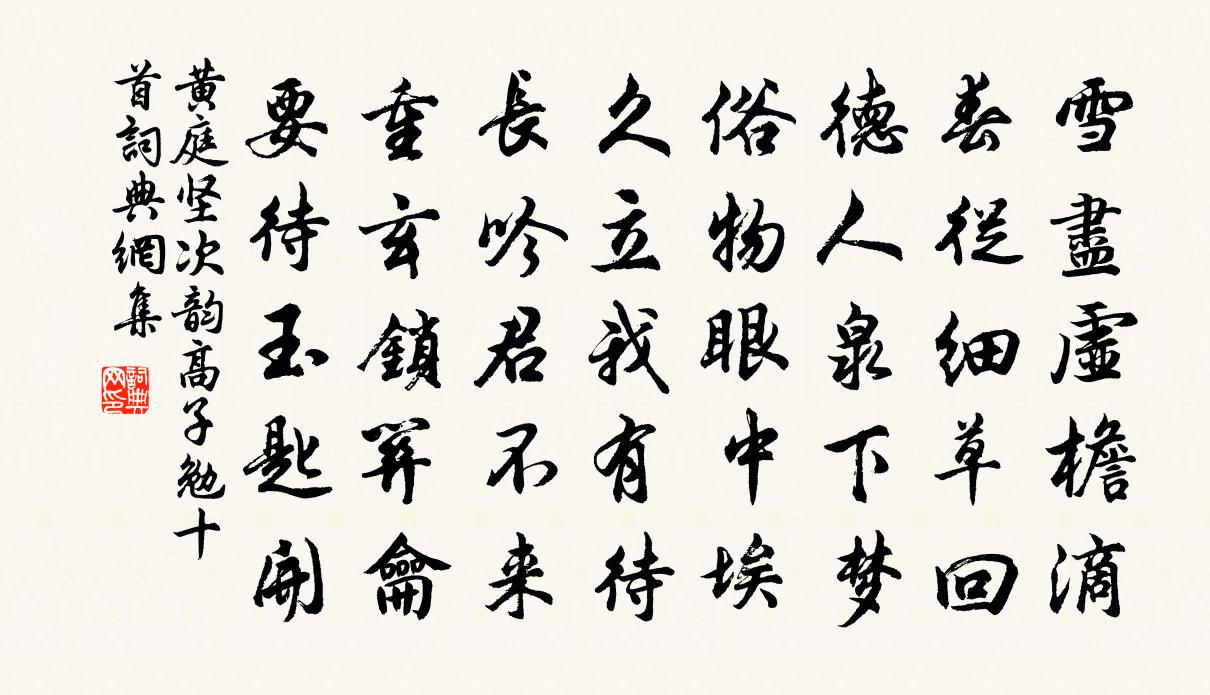 雪盡虛檐滴
春從細草回
德人泉下梦
俗物眼中埃
久立我有待
長吟君不来
重玄鎖關龠
要待玉匙開
黄庭坚次韵高子勉十
首詞典網集
詞典网印